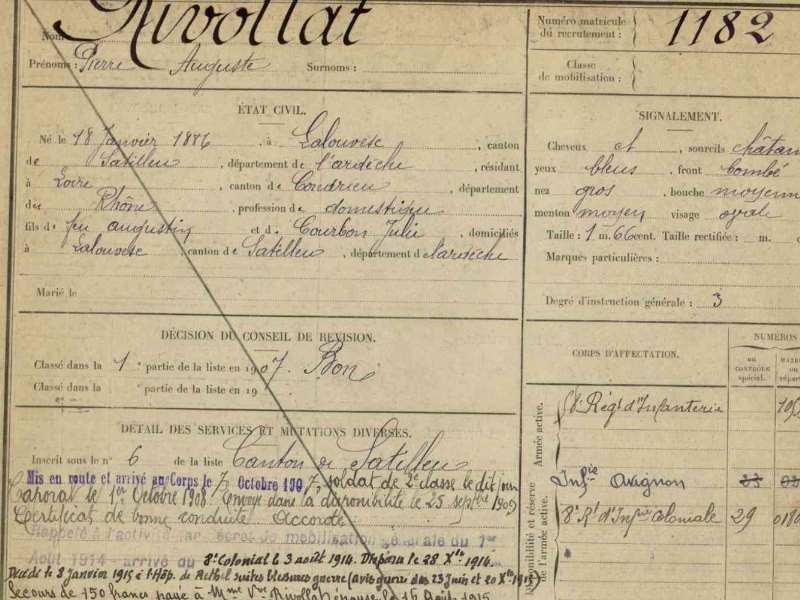 Nom Rivollat
Prénoms : Pierre Auguste Surnoms :
Numéro matricule du recrutement : 1182
Classe de mobilisation :
ÉTAT CIVIL.
Né le 18 Janvier 1886, à Lalouvesc, canton
de Satillieu, département de l'ardèche, résidant
à Loire, canton de Condrieu, département
du Rhône, profession de domestique
fils de feu augustin et de Courbon Julie, domiciliés
à Lalouvesc, canton de Satillieu, département d l'ardèche
Marié le
SIGNALEMENT.
Cheveux et, sourcils châtain
yeux bleus, front bombé
nez gros, bouche moyenne
menton moyen visage ovale
Taille : 1 m. 66 cent. Taille rectifiée : m.
Marques particulières :
Degré d'instruction générale : 3
DÉCISION DU CONSEIL DE REVISION.
Classé dans la 1e partie de la liste en 1907. Bon
Classé dans la partie de la liste en 19
DÉTAIL DES SERVICES ET MUTATIONS DIVERSES.
Inscrit sous le n° 6 de la liste Canton de Satillieu
Mis en route et arrivé au Corps le 7 Octobre 1907, soldat de 2e classe le dit jour
Caporal le 1er Octobre 1908. Envoyé dans la disponibilité le 25 septbre 1909
Certificat de bonne conduite Accordé
Rappelé à l'activité par décret de mobilisation générale du 1er
Août 1914 - arrivé au 8e Colonial le 3 août 1914. Disparu le 28 Xbre 1914.
Décédé le 8 Janvier 1915 à l'Hôp. de Rethel suites blessures guerre (avis guerre des 23 Juin et 20 Xbre 1915)
Secours de 150 francs payé à Mme Vve Rivollat épouse le 16 Août 1915
CORPS D'AFFECTATION.
NUMÉROS
DU CONTRÔLE spécial.
Armée active.
Régt d'Infanterie
Disponibilité et réserve de l'armée active.
Infie Avignon
8e Rt d'Infie Coloniale 29